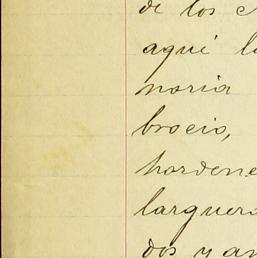 de los
aquí
noria
brocio,
hordene
larguero
dos y an